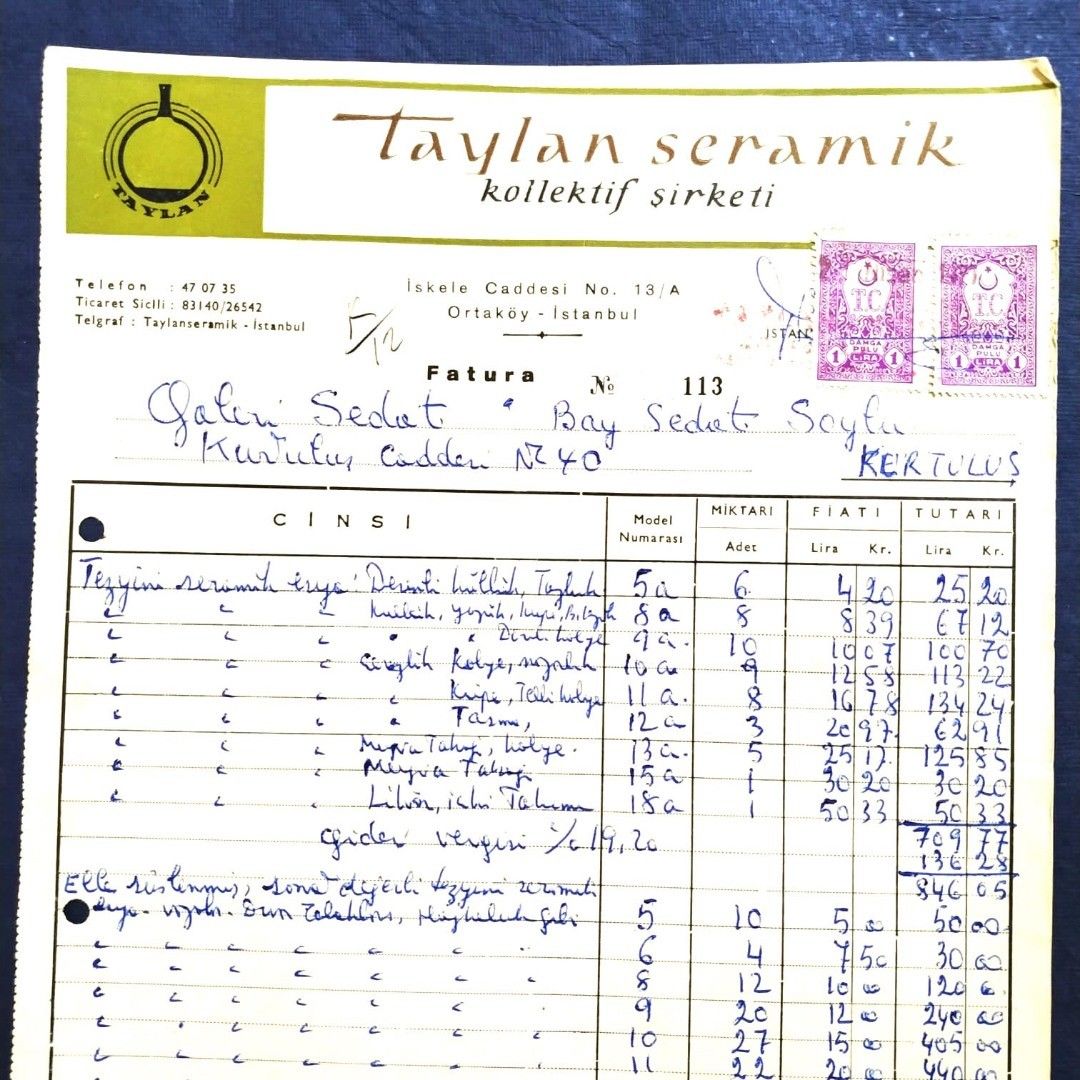 TAYLAN
Taylan seramik
kollektif şirketi
Telefon : 47 07 35
Ticaret Siclli : 83140/26542
Telgraf : Taylanseramik - İstanbul
İskele Caddesi No. 13/A
Ortaköy - İstanbul
5/12
İSTAN
T.C
DAMGA PULU
1 LİRA 1
T.C
DAMGA PULU
1 LİRA 1
Fatura № 113
Galeri Sedat Bay Sedat Soylu
Kurtuluş Caddesi No 40 KERTULUŞ
CİNSİ Model Numarası MİKTARI Adet FİATI Lira Kr. TUTARI Lira Kr.
Tezyini seramik eşya: Derinli küllük, 5a 6 4 20 25 20
" " " Küllük, 8a 8 8 39 67 12
" " " " " kolye 9a. 10 10 07 100 70
" " " Kolye, 10a 9 12 58 113 22
" " " " Küpe, Telli kolye 11a. 8 16 78 134 24
" " " " Tasma, 12a 3 20 97. 62 91
" " " Meyva Tabağı, kolye. 13a. 5 25 17. 125 85
" " " Meyva Tabağı 15a 1 30 20 30 20
" " " Likör, içki Takımı 18a 1 50 33 50 33
709 77
Gider vergisi % 19,20 136 28
846 05
Elle süslenmiş, sanat değerli tezyini seramik
eşya. vazolar. Duvar Tabakları, gibi 5 10 5 00 50 00
" " " " " " 6 4 7 50 30 00
" " " " " " 8 12 10 00 120 0
" " " " " " 9 20 12 00 240 00
" " " " " " 10 27 15 00 405 00
" " " " " " 11 22 20 00 440 00